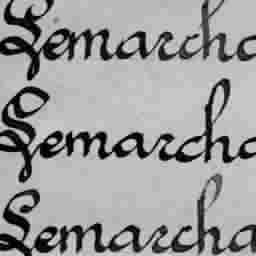 Lemarcha
Lemarcha
Lemarcha